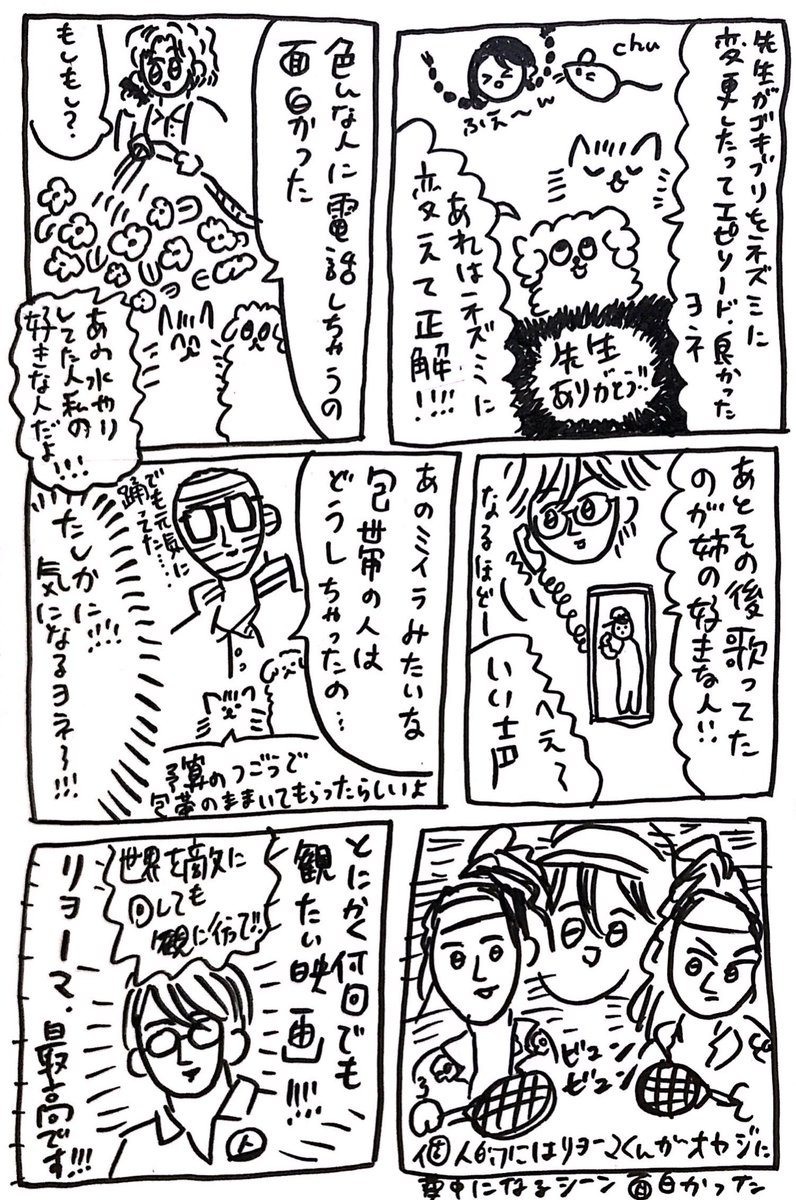 先生がゴキブリをネズミに
変更したってエピソード、良かった
ヨネ
chu
ふぇ〜ん
あれはネズミに
変えて正解!!!!
先生
ありがとう
色んな人に電話しちゃうの
面白かった
もしもし?
あの水やり
してた人私の
好きな人だよ!!!
あとその後歌ってた
のが姉の好きな人!!
なるほどー
へえ〜
いい声
あのミイラみたいな
包帯の人は
どうしちゃったの…
でも元気に
踊ってた……
予算のつごうで
包帯のままいてもらったらしいよ
たしかに!!!
気になるヨネ〜!!!
ビュン
ビュン
個人的にはリョーマくんがオヤジに
夢中になるシーン面白かった
とにかく何回でも
観たい映画!!!!
世界を敵に
回しても
観に行って!!
リョーマ、最高です!!!